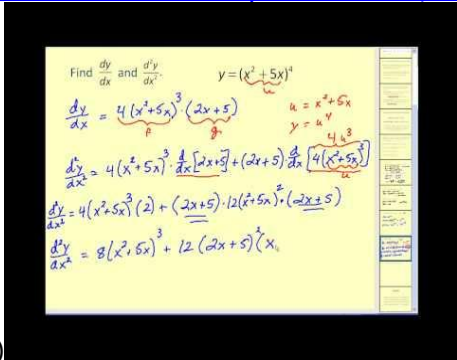 Find dy/dx and d²y/dx². y = (x² + 5x)⁴
u
dy/dx = 4(x²+5x)³ · (2x+5)
f g
u = x²+5x
y = u⁴
4u³
d²y/dx² = 4(x²+5x)³ · d/dx [2x+5] + (2x+5) · d/dx [4(x²+5x)³]
u
d²y/dx² = 4(x²+5x)³ (2) + (2x+5) · 12(x²+5x)² · (2x+5)
d²y/dx² = 8(x²+5x)³ + 12(2x+5)²(x
)